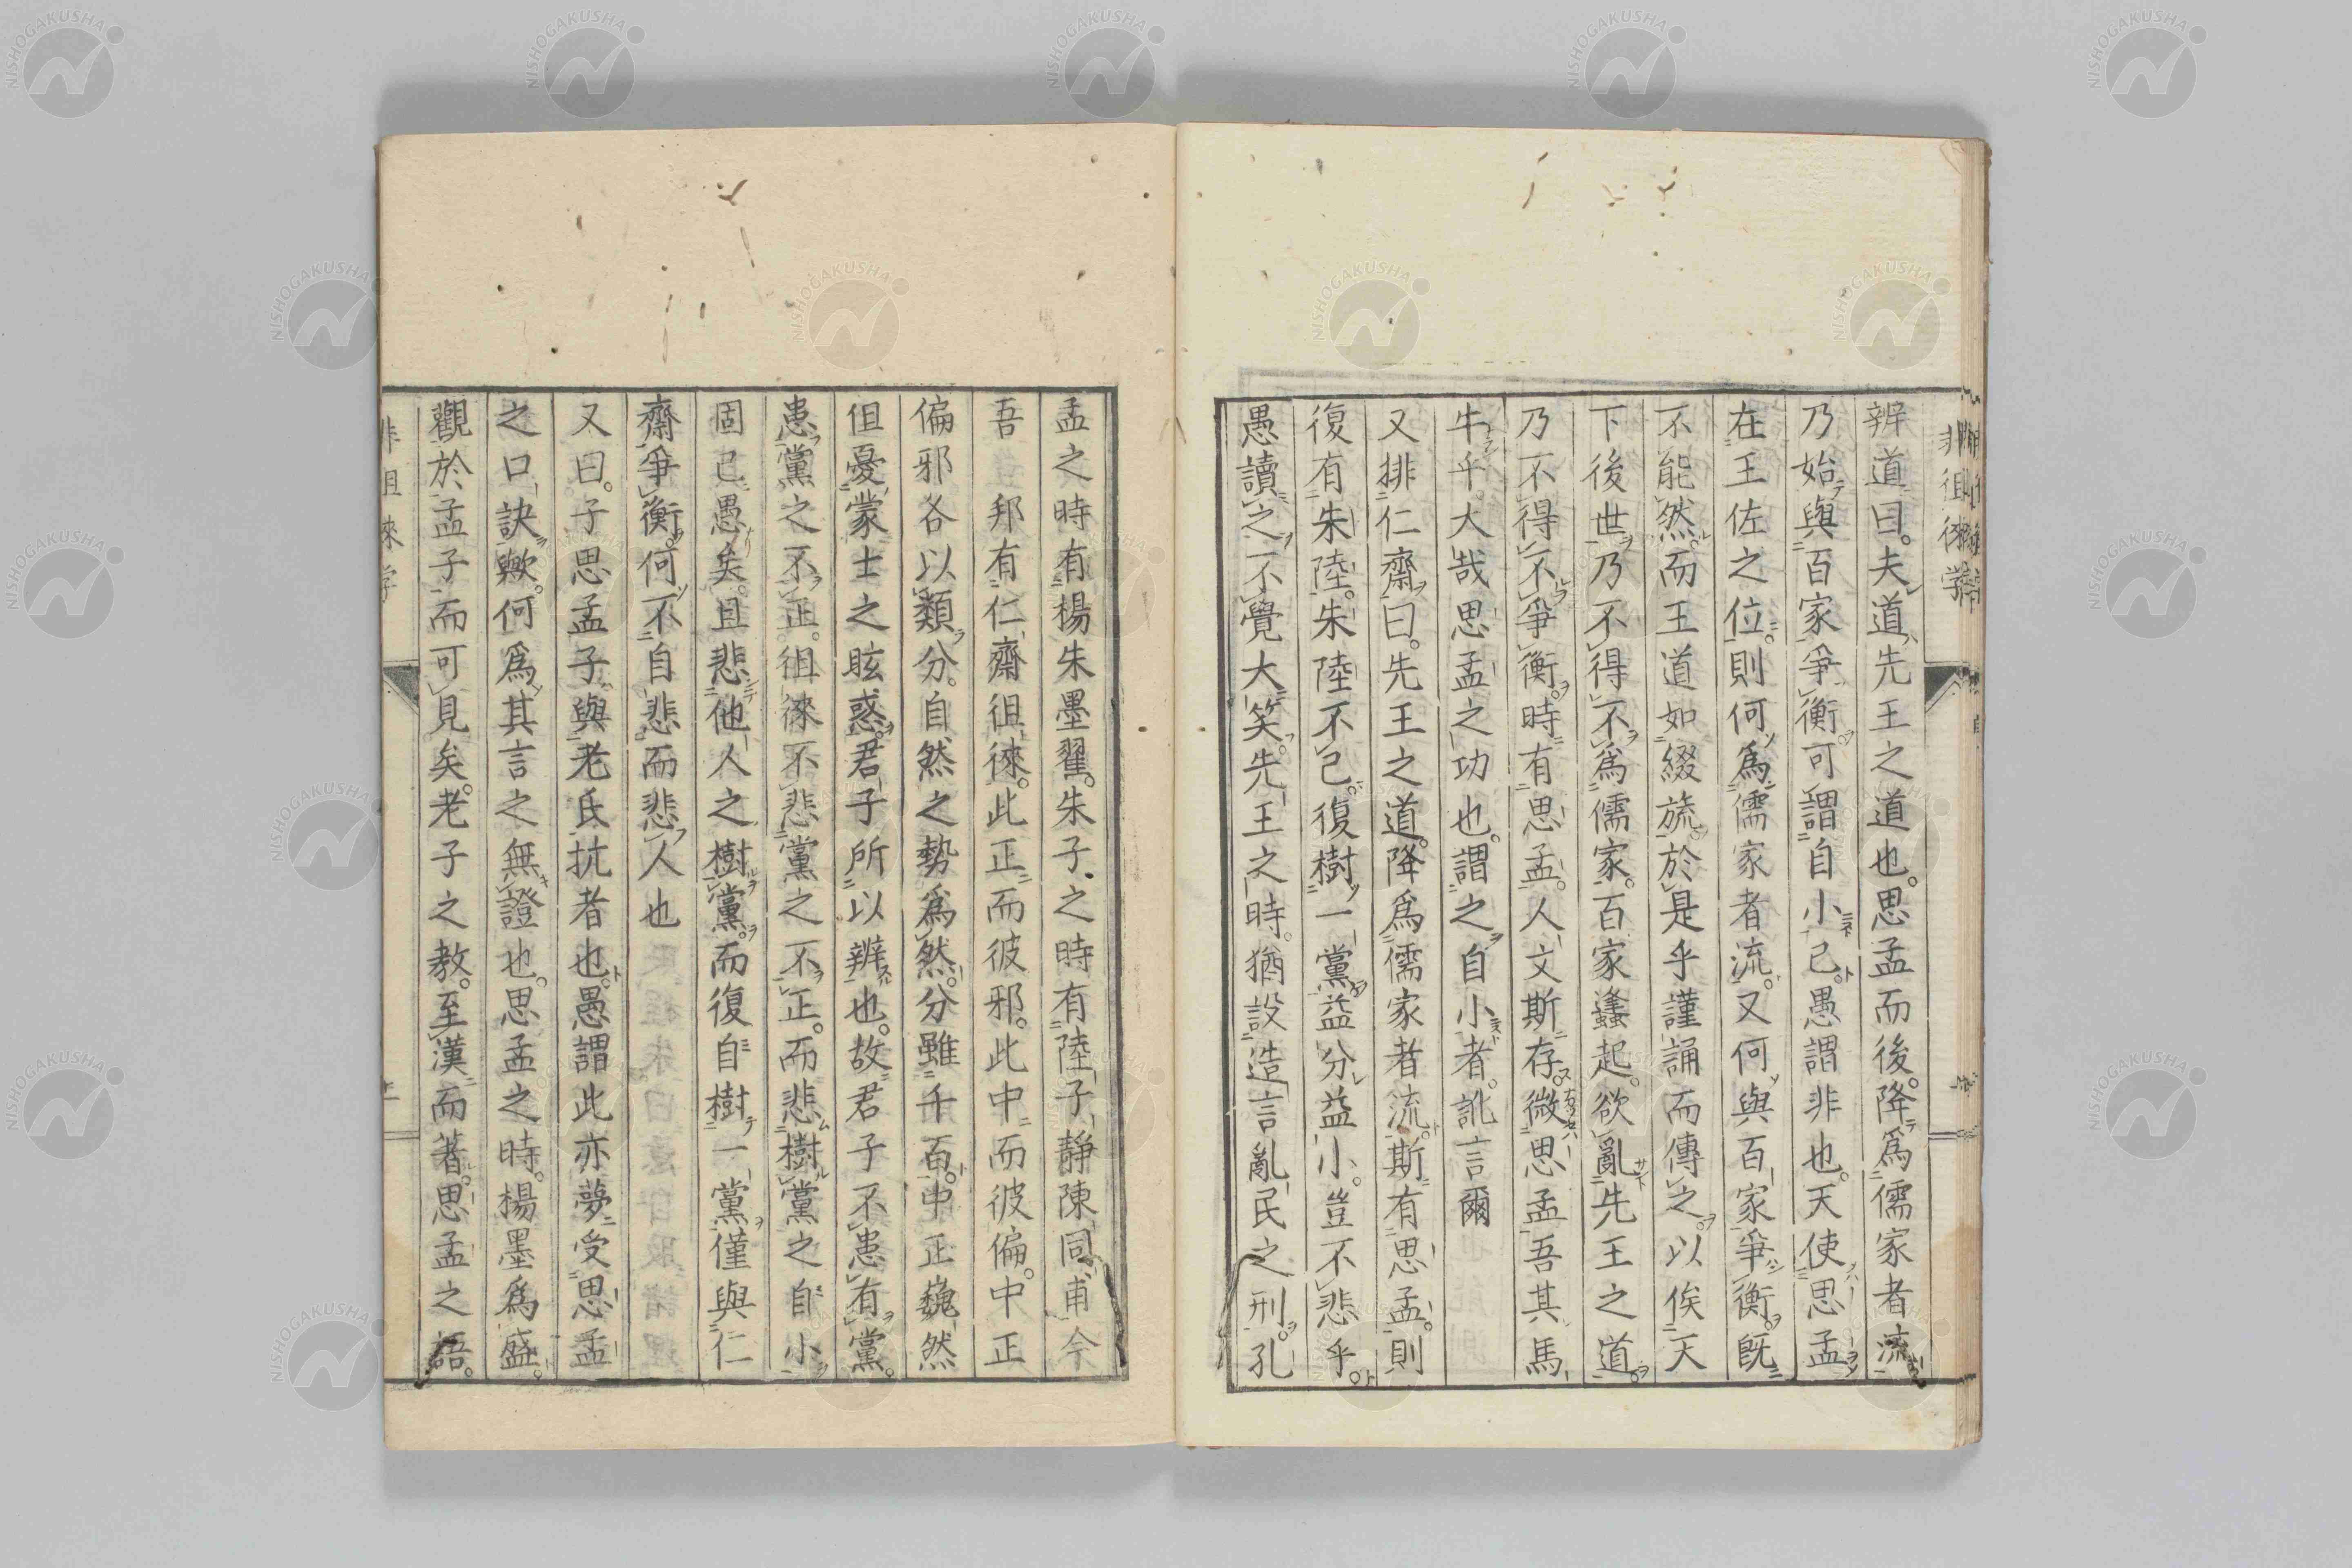 辨道曰。夫道先王之道也。思孟而後。降爲儒家者流
乃始與百家爭衡可謂自小已。愚謂非也。天使思孟
在王佐之位。則何爲儒家者流。又何與百家爭衡。既
不能然。而王道如綴旒。於是乎謹誦而傳之。以俟天
下後世。乃不得不爲儒家。百家蠭起。欲亂先王之道。
乃不得不爭衡。時有思孟。人文斯存。微思孟吾其馬
牛乎。大哉思孟之功也。謂之自小者。訛言爾
又排仁齋曰。先王之道。降爲儒家者流。斯有思孟。則
復有朱陸。朱陸不已。復樹一黨。益分益小。豈不悲乎。
愚讀之不覺大笑。先王之時。猶設造言亂民之刑。孔
孟之時有楊朱墨翟。朱子之時有陸子靜陳同甫今
吾 邦有仁齋徂徠。此正而彼邪。此中而彼偏。中正
偏邪各以類分。自然之勢爲然。分雖千百。中正巍然
但憂蒙士之眩惑。君子所以辨也。故君子不患有黨。
患黨之不正。徂徠不悲黨之不正。而悲樹黨之自小
固已愚矣。且悲他人之樹黨。而復自樹一黨。僅與仁
齋爭衡。何不自悲。而悲人也
又曰。子思孟子與老氏抗者也。愚謂此亦夢受思孟
之口訣歟。何爲其言之無證也。思孟之時。楊墨爲盛。
觀於孟子而可見矣。老子之教。至漢而著。思孟之語。
非徂徠学